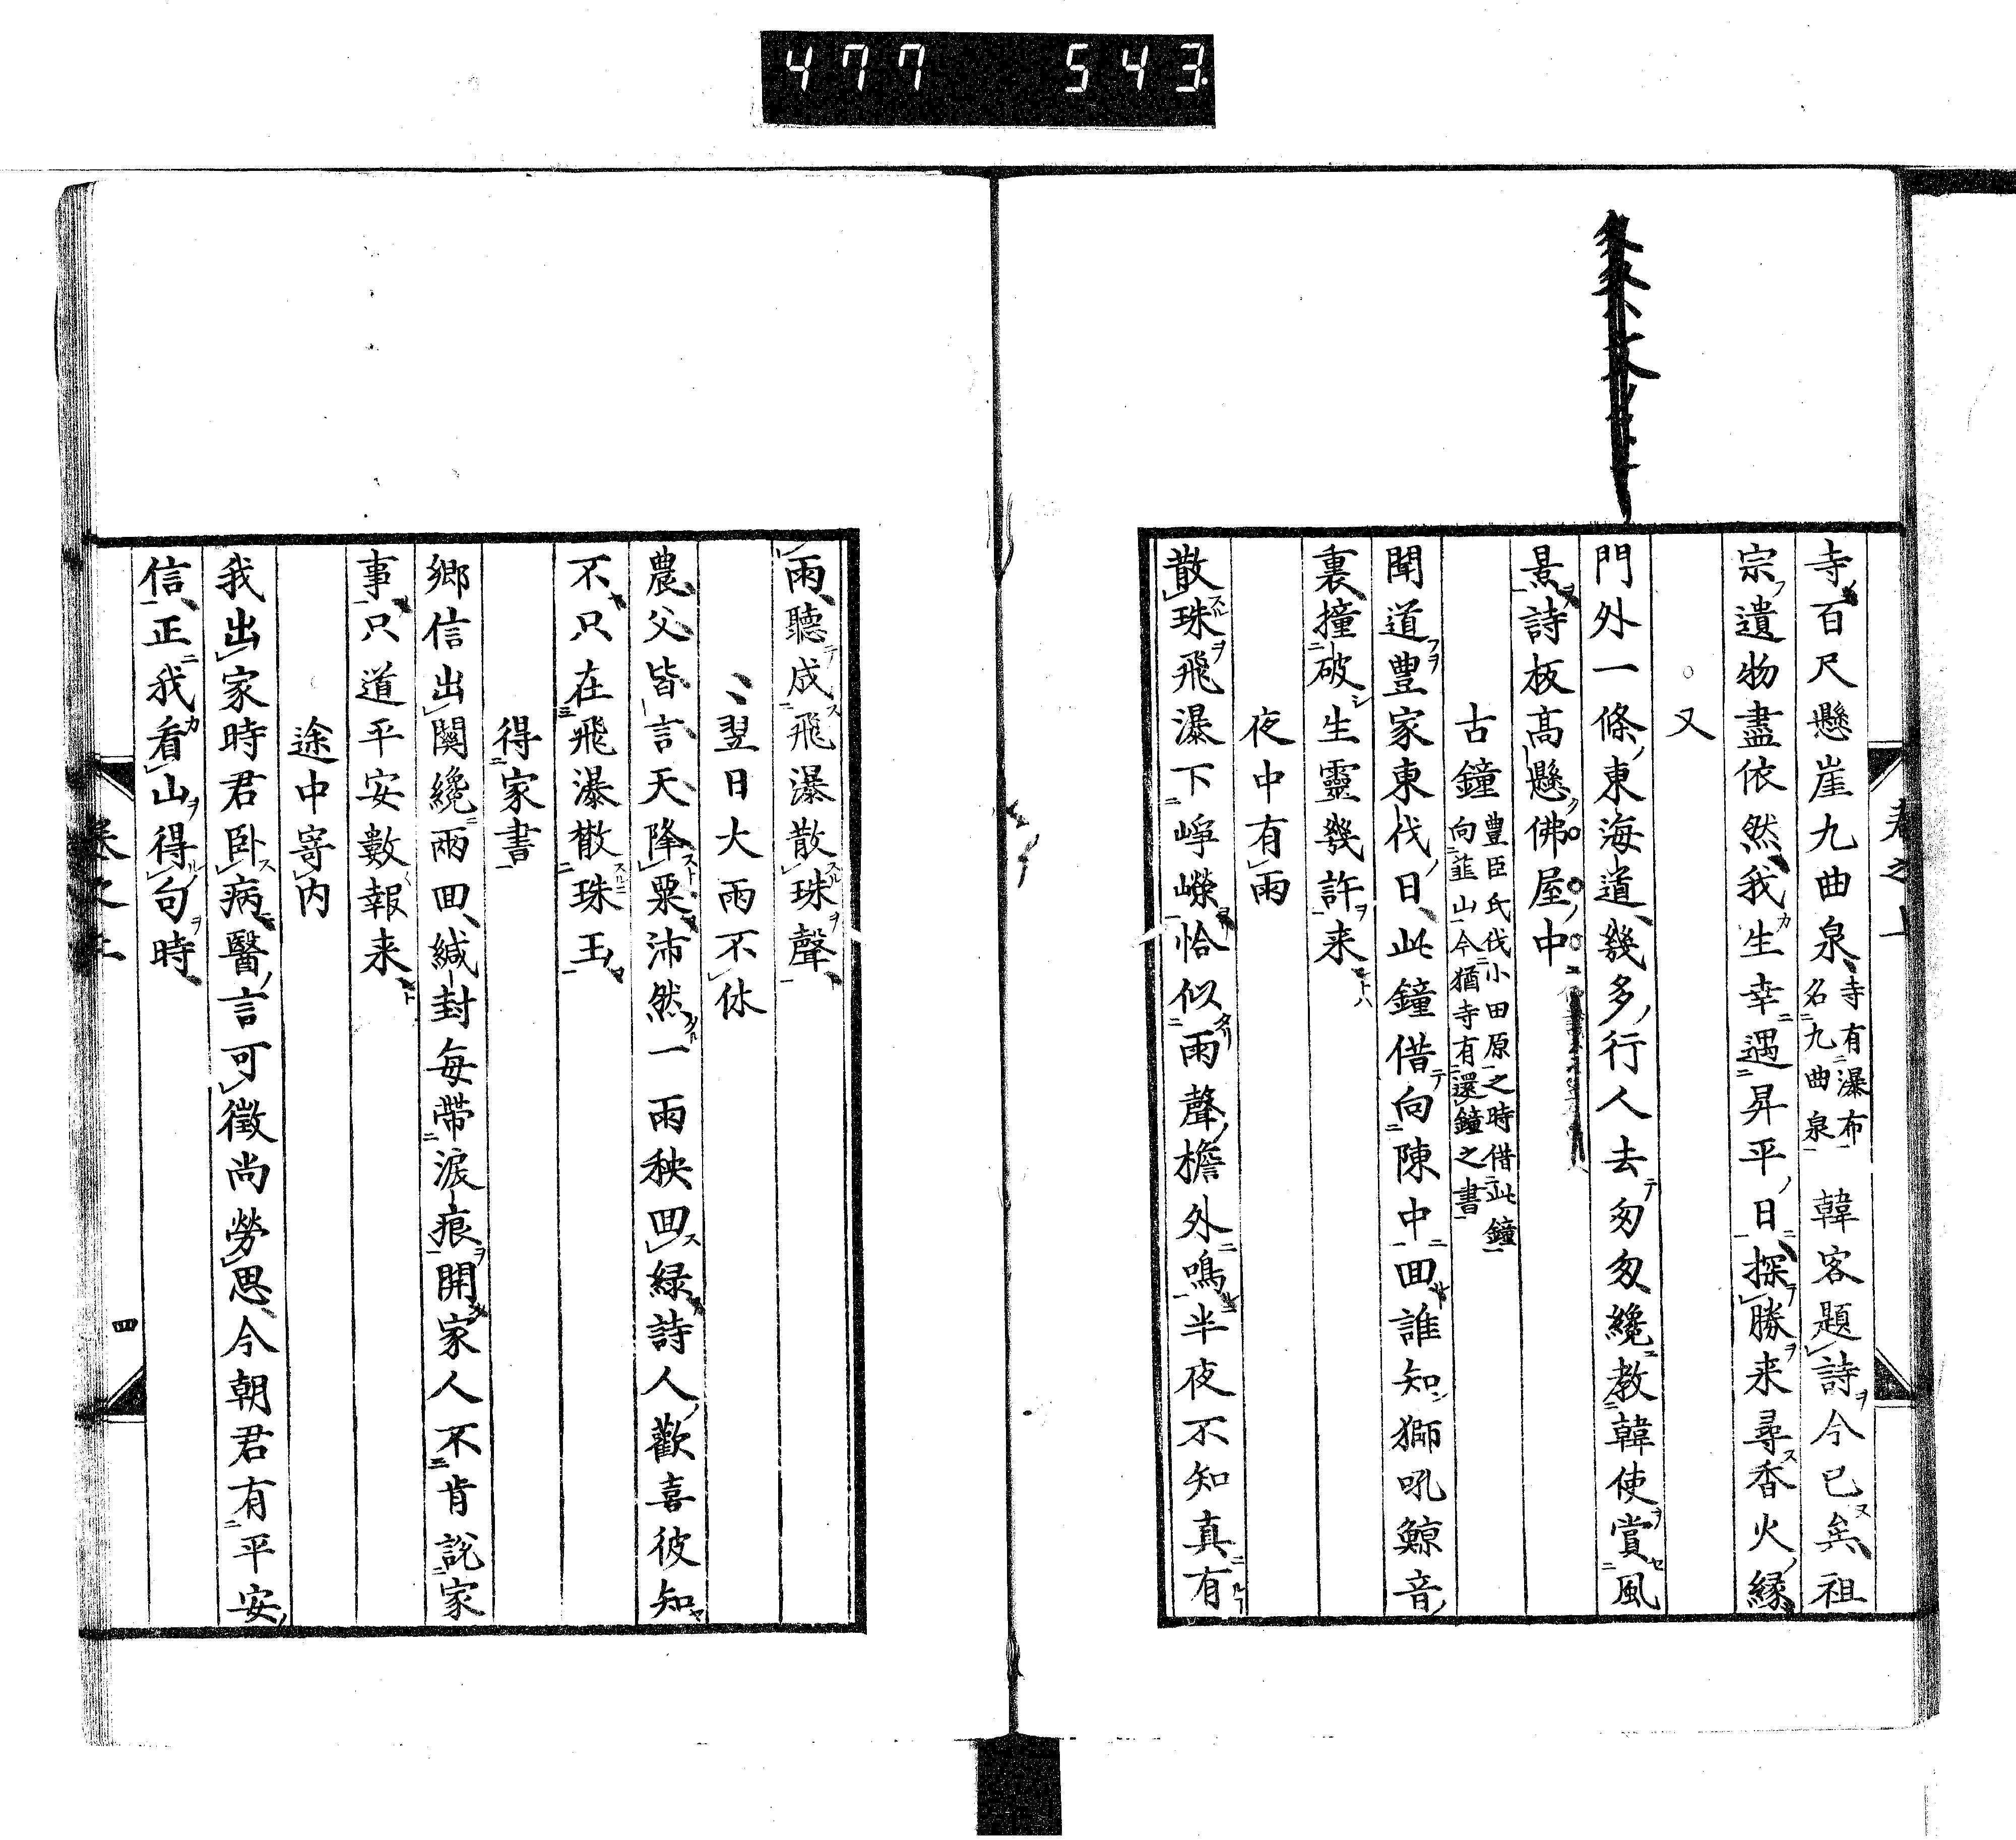 477 543
寺百尺懸崖九曲泉寺有瀑布名九曲泉 韓客題詩今已矣祖
宗遺物盡依然我生幸遇昇平日探勝来尋香火縁
又
門外一條東海道幾多行人去匆匆纔教韓使賞風
景詩板高懸佛屋中
古鐘豊臣氏伐小田原之時借此鐘向韮山今猶寺有還鐘之書
聞道豊家東伐日此鐘借向陳中回誰知獅吼鯨音
裏撞破生靈幾許来
夜中有雨
散珠飛瀑下崢嶸恰似雨聲檐外鳴半夜不知真有
雨聽成飛瀑散珠聲
翌日大雨不休
農父皆言天降粟沛然一雨秧回緑詩人歡喜彼知
不只在飛瀑散珠玉
得家書
郷信出關纔兩回緘封毎帶涙痕開家人不肯説家
事只道平安數報来
途中寄内
我出家時君臥病醫言可徵尚勞思今朝君有平安
信正我看山得句時
巻之上
四